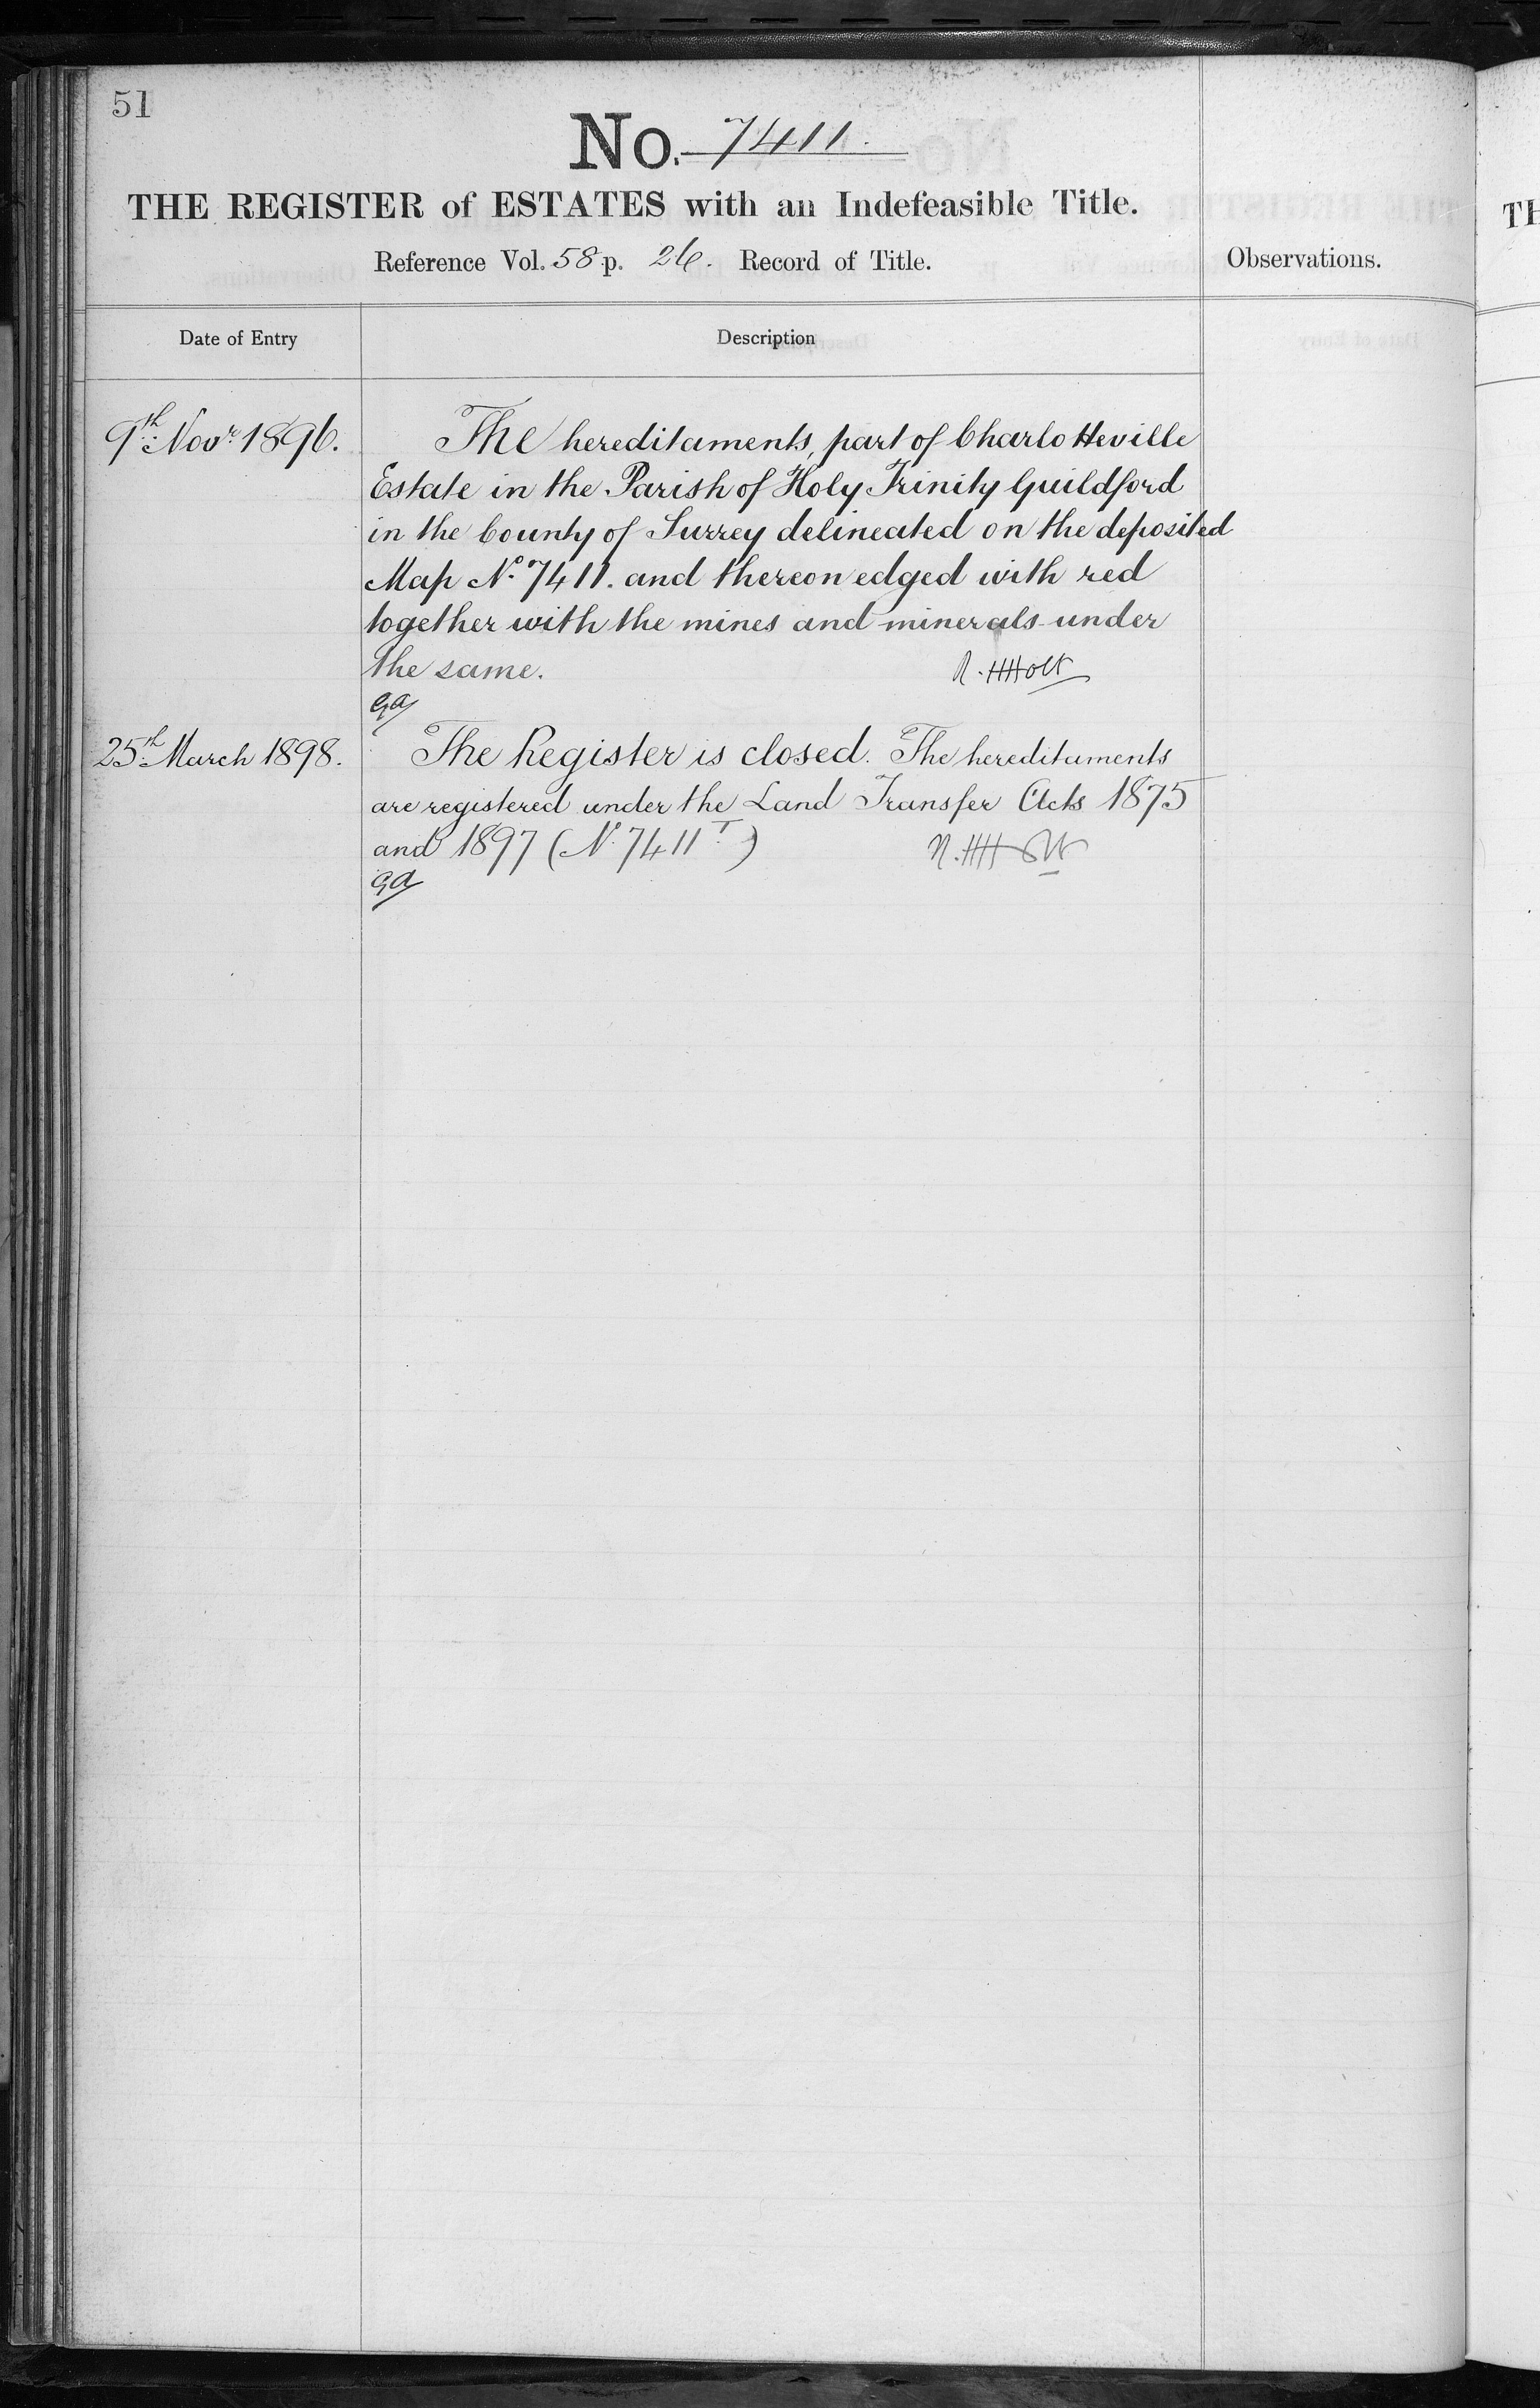 51
No. 7411.
THE REGISTER of ESTATES with an Indefeasible Title.
Reference Vol. 58 p. 26. Record of Title.
Observations.
Date of Entry
Description
9th Novr. 1896.
The hereditaments, part of Charlotteville
Estate in the Parish of Holy Trinity Guildford
in the County of Surrey delineated on the deposited
Map No. 7411. and thereon edged with red
together with the mines and minerals under
the same.
Holt
25th March 1898.
The Register is closed. The hereditaments
are registered under the Land Transfer Acts 1875
and 1897 (No. 7411 T.)
Holt
TH